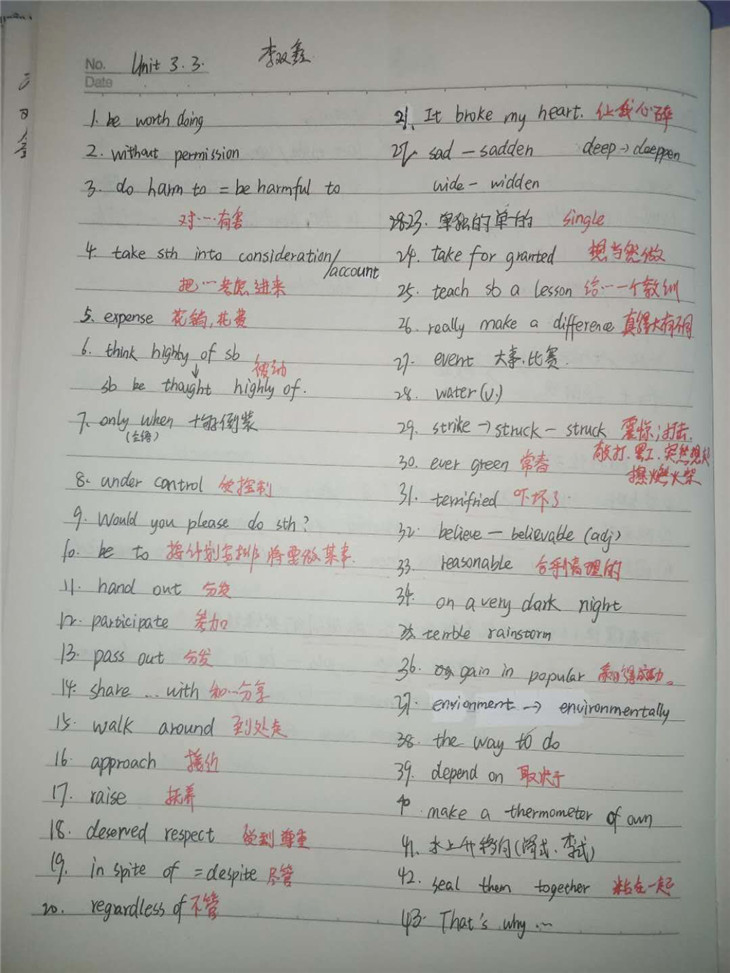 No. Unit 3.3. 李双鑫
Date
1. be worth doing
2. without permission
3. do harm to = be harmful to
对…有害
4. take sth into consideration/account
把…考虑进来
5. expense 花销,花费
6. think highly of sb
被动
sb be thought highly of.
7. only when
(主语)
8. under control 受控制
9. Would you please do sth?
10. be to 按计划安排将要做某事.
11. hand out 分发
12. participate 参加
13. pass out 分发
14. share … with 和…分享
15. walk around 到处走
16. approach 接近
17. raise 抚养
18. deserved respect 受到尊重
19. in spite of = despite 尽管
20. regardless of 不管
21. It broke my heart. 让我心碎
22. sad — sadden deep → deeppen
wide — widden
23. 单独的单一的 single
24. take for granted 想当然做
25. teach sb a lesson 给…一个教训
26. really make a difference
27. event 大事.比赛.
28. water (v.)
29. strike → struck — struck 震惊;打击.
敲打.罢工.突然想到
擦燃火柴
30. ever green 常春
31. terrifried 吓坏了.
32. believe — believable (adj)
33. reasonable 合乎情理的
34. on a very dark night
35. terrble rainstorm
36. gain in popular
37. envionment → environmentally
38. the way to do
39. depend on 取决于
40. make a thermometer of own
41. 水上升移向
42. seal them together 粘在一起
43. That's why …